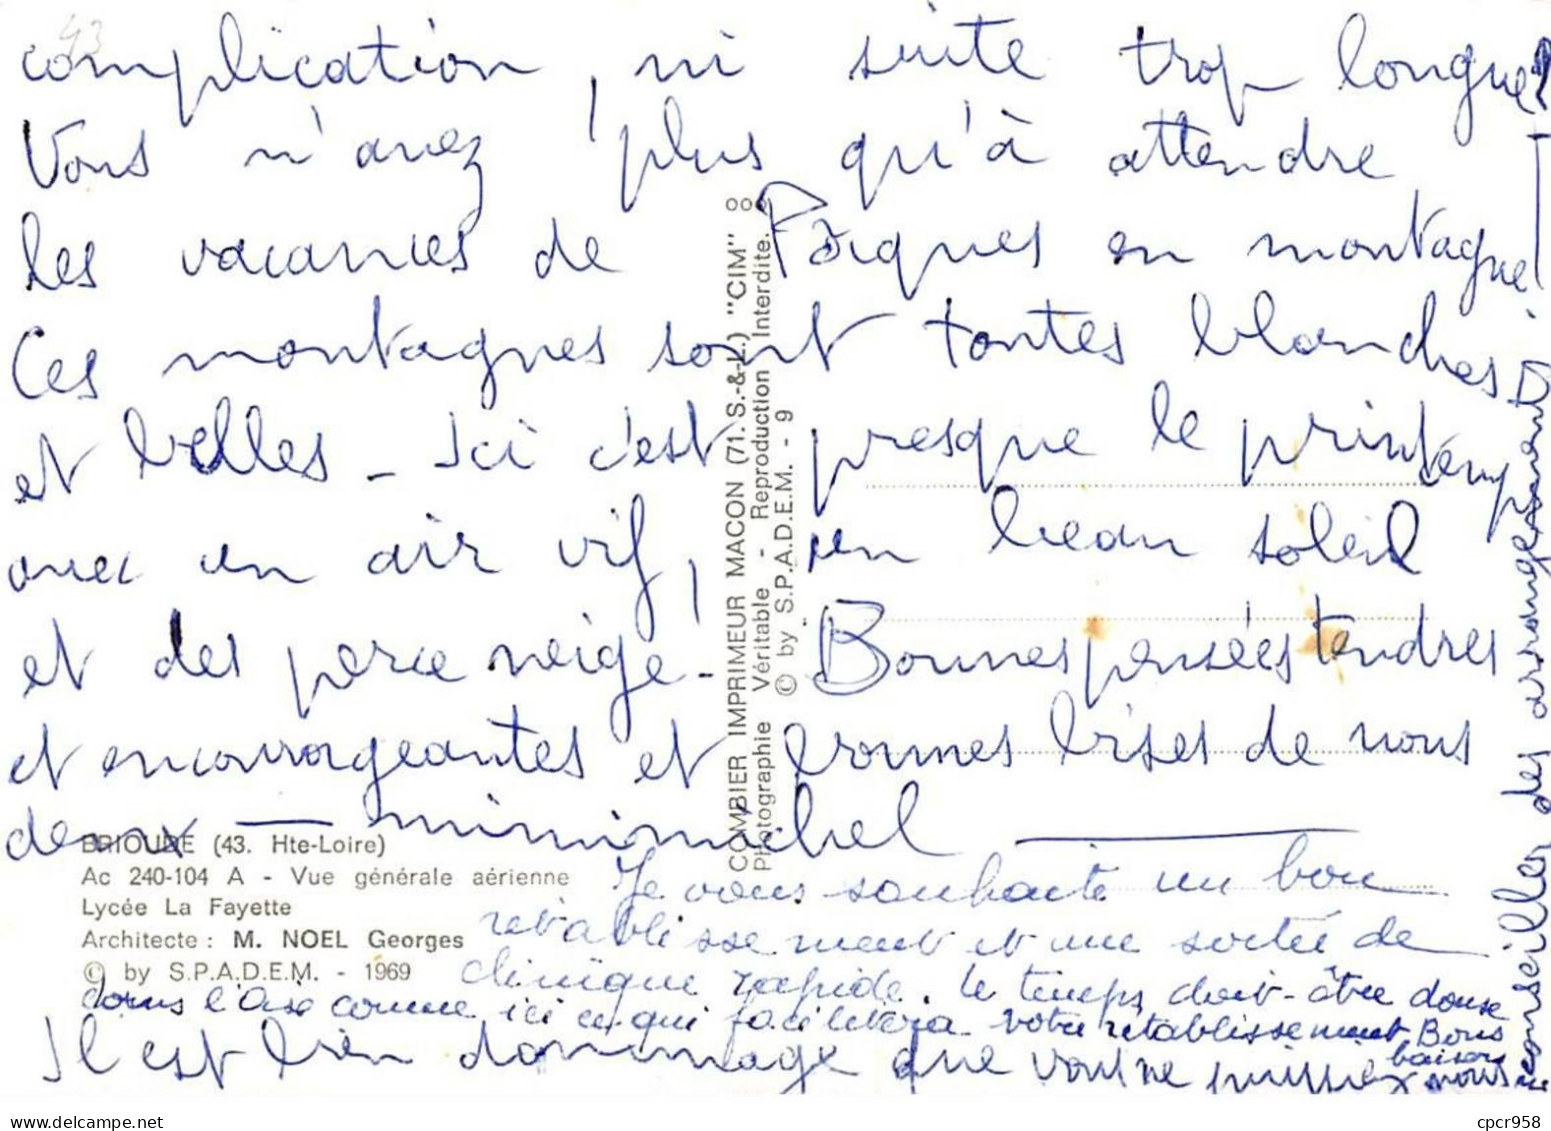 43
complication, ni suite trop longue?
Vous n'avez plus qu'à attendre
les vacances de Pâques en montagne!
Ces montagnes sont toutes blanches
et belles - Ici c'est presque le printemps
avec un air vif, un beau soleil
et des perce neige. Bonnes pensées tendres
et encourageantes et bonnes bises de nous
deux — mimimichel —
BRIOUDE (43. Hte-Loire)
Ac 240-104 A - Vue générale aérienne
Lycée La Fayette
Architecte : M. NOEL Georges
© by S.P.A.D.E.M. - 1969
COMBIER IMPRIMEUR MACON (71. S.-&-L.) "CIM"
Photographie Véritable - Reproduction Interdite.
© by S.P.A.D.E.M. - 9
Je vous souhaite un bon
rétablissement et une sortie de
clinique rapide. Le temps doit-être doux
dans l'Oise comme ici ce qui facilitera votre rétablissement Bons
baisers
Il est bien dommage que vous ne puissiez nous
conseiller des arrangements
cpcr958